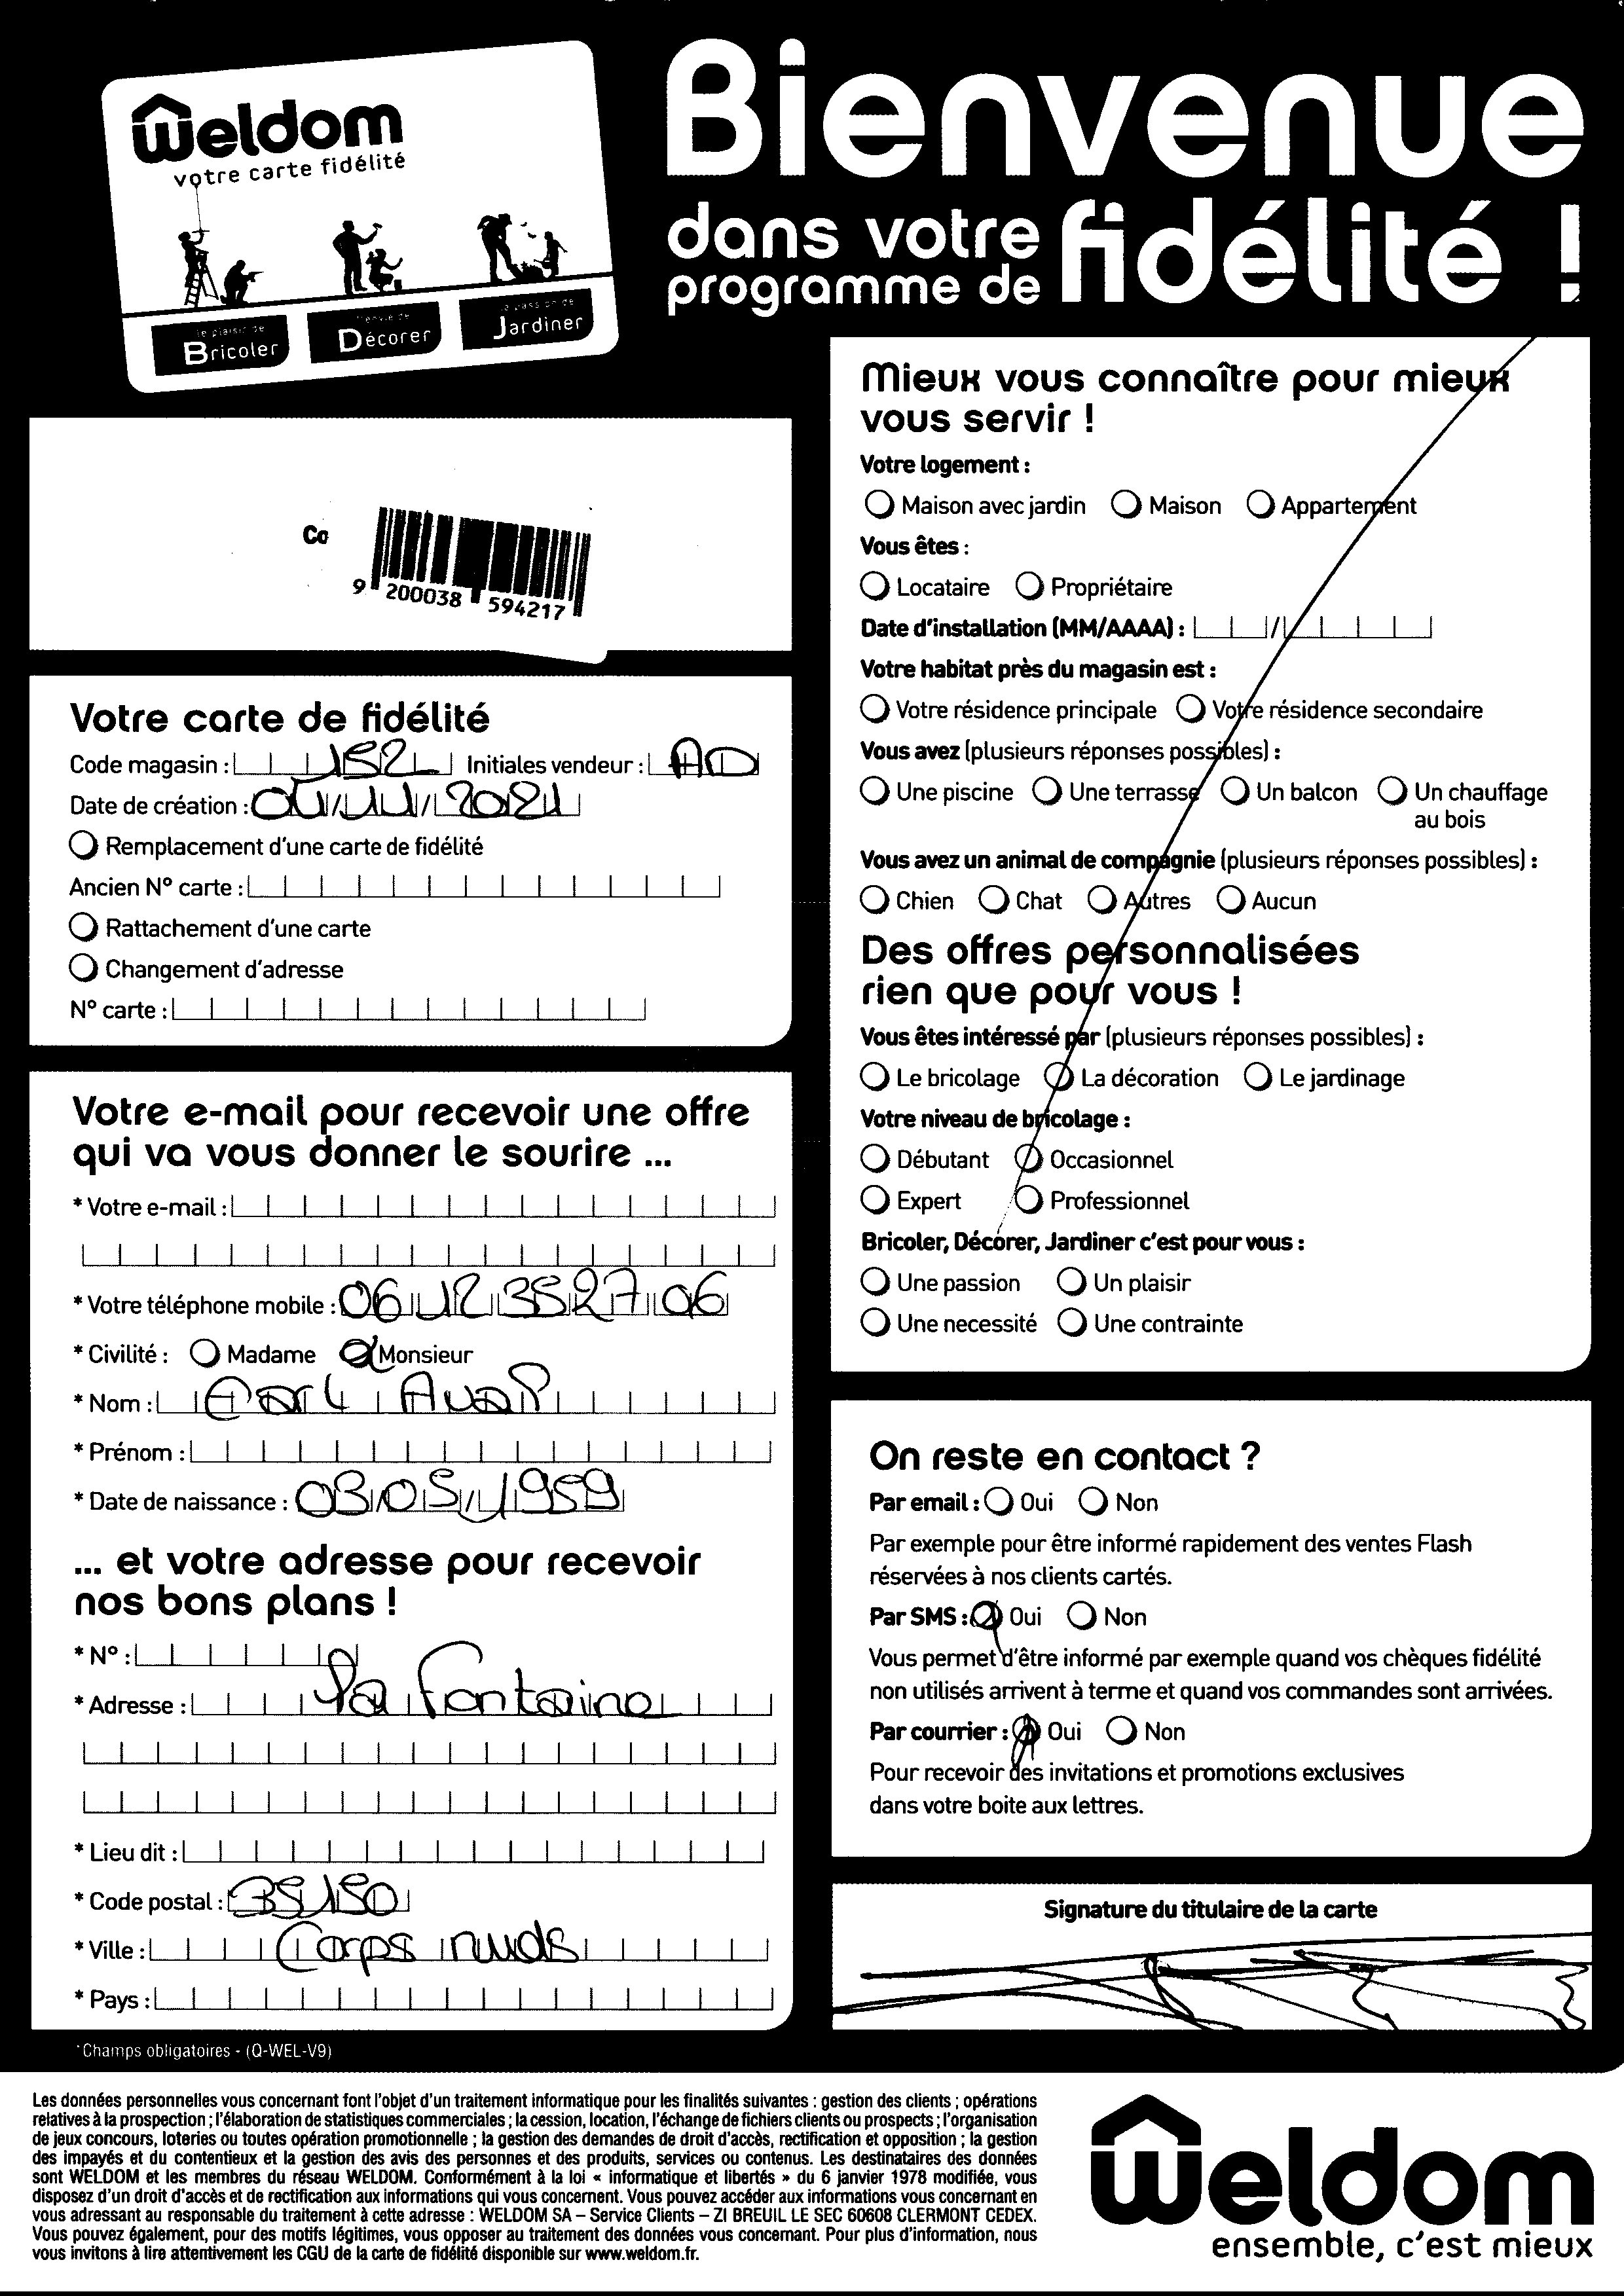 Weldom
votre carte fidélité
le plaisir de
Bricoler
l'envie de
Décorer
la passion de
Jardiner
Bienvenue
dans votre
programme de fidélité !
Co
9 200038 594217
Votre carte de fidélité
Code magasin : 152 Initiales vendeur : AD
Date de création :
Remplacement d'une carte de fidélité
Ancien N° carte :
Rattachement d'une carte
Changement d'adresse
N° carte :
Votre e-mail pour recevoir une offre
qui va vous donner le sourire ...
* Votre e-mail :
* Votre téléphone mobile : 06 12 35 27 06
* Civilité : Madame Monsieur
* Nom :
* Prénom :
* Date de naissance : 03/05/1959
... et votre adresse pour recevoir
nos bons plans !
* N° :
* Adresse : la Fontaine
* Lieu dit :
* Code postal : 35150
* Ville : Corps nuds
* Pays :
*Champs obligatoires - (Q-WEL-V9)
Mieux vous connaître pour mieux
vous servir !
Votre logement :
Maison avec jardin Maison Appartement
Vous êtes :
Locataire Propriétaire
Date d'installation (MM/AAAA) : /
Votre habitat près du magasin est :
Votre résidence principale Votre résidence secondaire
Vous avez (plusieurs réponses possibles) :
Une piscine Une terrasse Un balcon Un chauffage
au bois
Vous avez un animal de compagnie (plusieurs réponses possibles) :
Chien Chat Autres Aucun
Des offres personnalisées
rien que pour vous !
Vous êtes intéressé par (plusieurs réponses possibles) :
Le bricolage La décoration Le jardinage
Votre niveau de bricolage :
Débutant Occasionnel
Expert Professionnel
Bricoler, Décorer, Jardiner c'est pour vous :
Une passion Un plaisir
Une necessité Une contrainte
On reste en contact ?
Par email : Oui Non
Par exemple pour être informé rapidement des ventes Flash
réservées à nos clients cartés.
Par SMS : Oui Non
Vous permet d'être informé par exemple quand vos chèques fidélité
non utilisés arrivent à terme et quand vos commandes sont arrivées.
Par courrier : Oui Non
Pour recevoir des invitations et promotions exclusives
dans votre boite aux lettres.
Signature du titulaire de la carte
Les données personnelles vous concernant font l'objet d'un traitement informatique pour les finalités suivantes : gestion des clients ; opérations
relatives à la prospection ; l'élaboration de statistiques commerciales ; la cession, location, l'échange de fichiers clients ou prospects ; l'organisation
de jeux concours, loteries ou toutes opération promotionnelle ; la gestion des demandes de droit d'accès, rectification et opposition ; la gestion
des impayés et du contentieux et la gestion des avis des personnes et des produits, services ou contenus. Les destinataires des données
sont WELDOM et les membres du réseau WELDOM. Conformément à la loi « informatique et libertés » du 6 janvier 1978 modifiée, vous
disposez d'un droit d'accès et de rectification aux informations qui vous concernent. Vous pouvez accéder aux informations vous concernant en
vous adressant au responsable du traitement à cette adresse : WELDOM SA – Service Clients – ZI BREUIL LE SEC 60608 CLERMONT CEDEX.
Vous pouvez également, pour des motifs légitimes, vous opposer au traitement des données vous concernant. Pour plus d'information, nous
vous invitons à lire attentivement les CGU de la carte de fidélité disponible sur www.weldom.fr.
Weldom
ensemble, c'est mieux